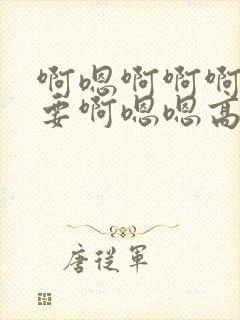 啊嗯啊啊啊
要啊嗯嗯高
唐从军